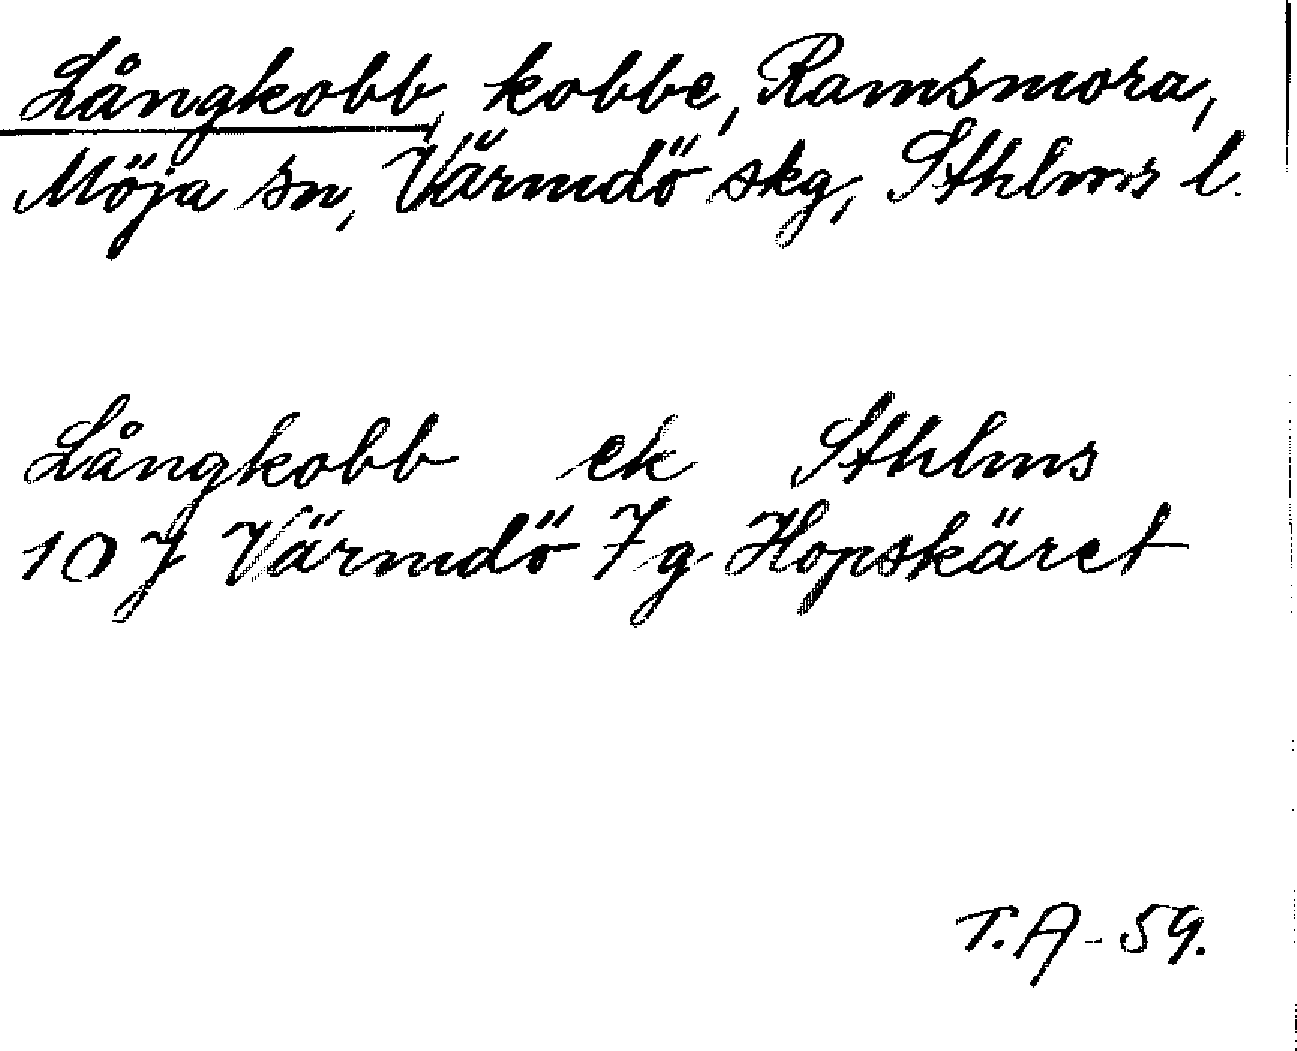 Långkobb, kobbe, Ramsmora,
Möja sn, Värmdö skg, Sthlms l.
Långkobb ek Sthlms
10 J Värmdö 7 g Hopskäret
T.A - 59.